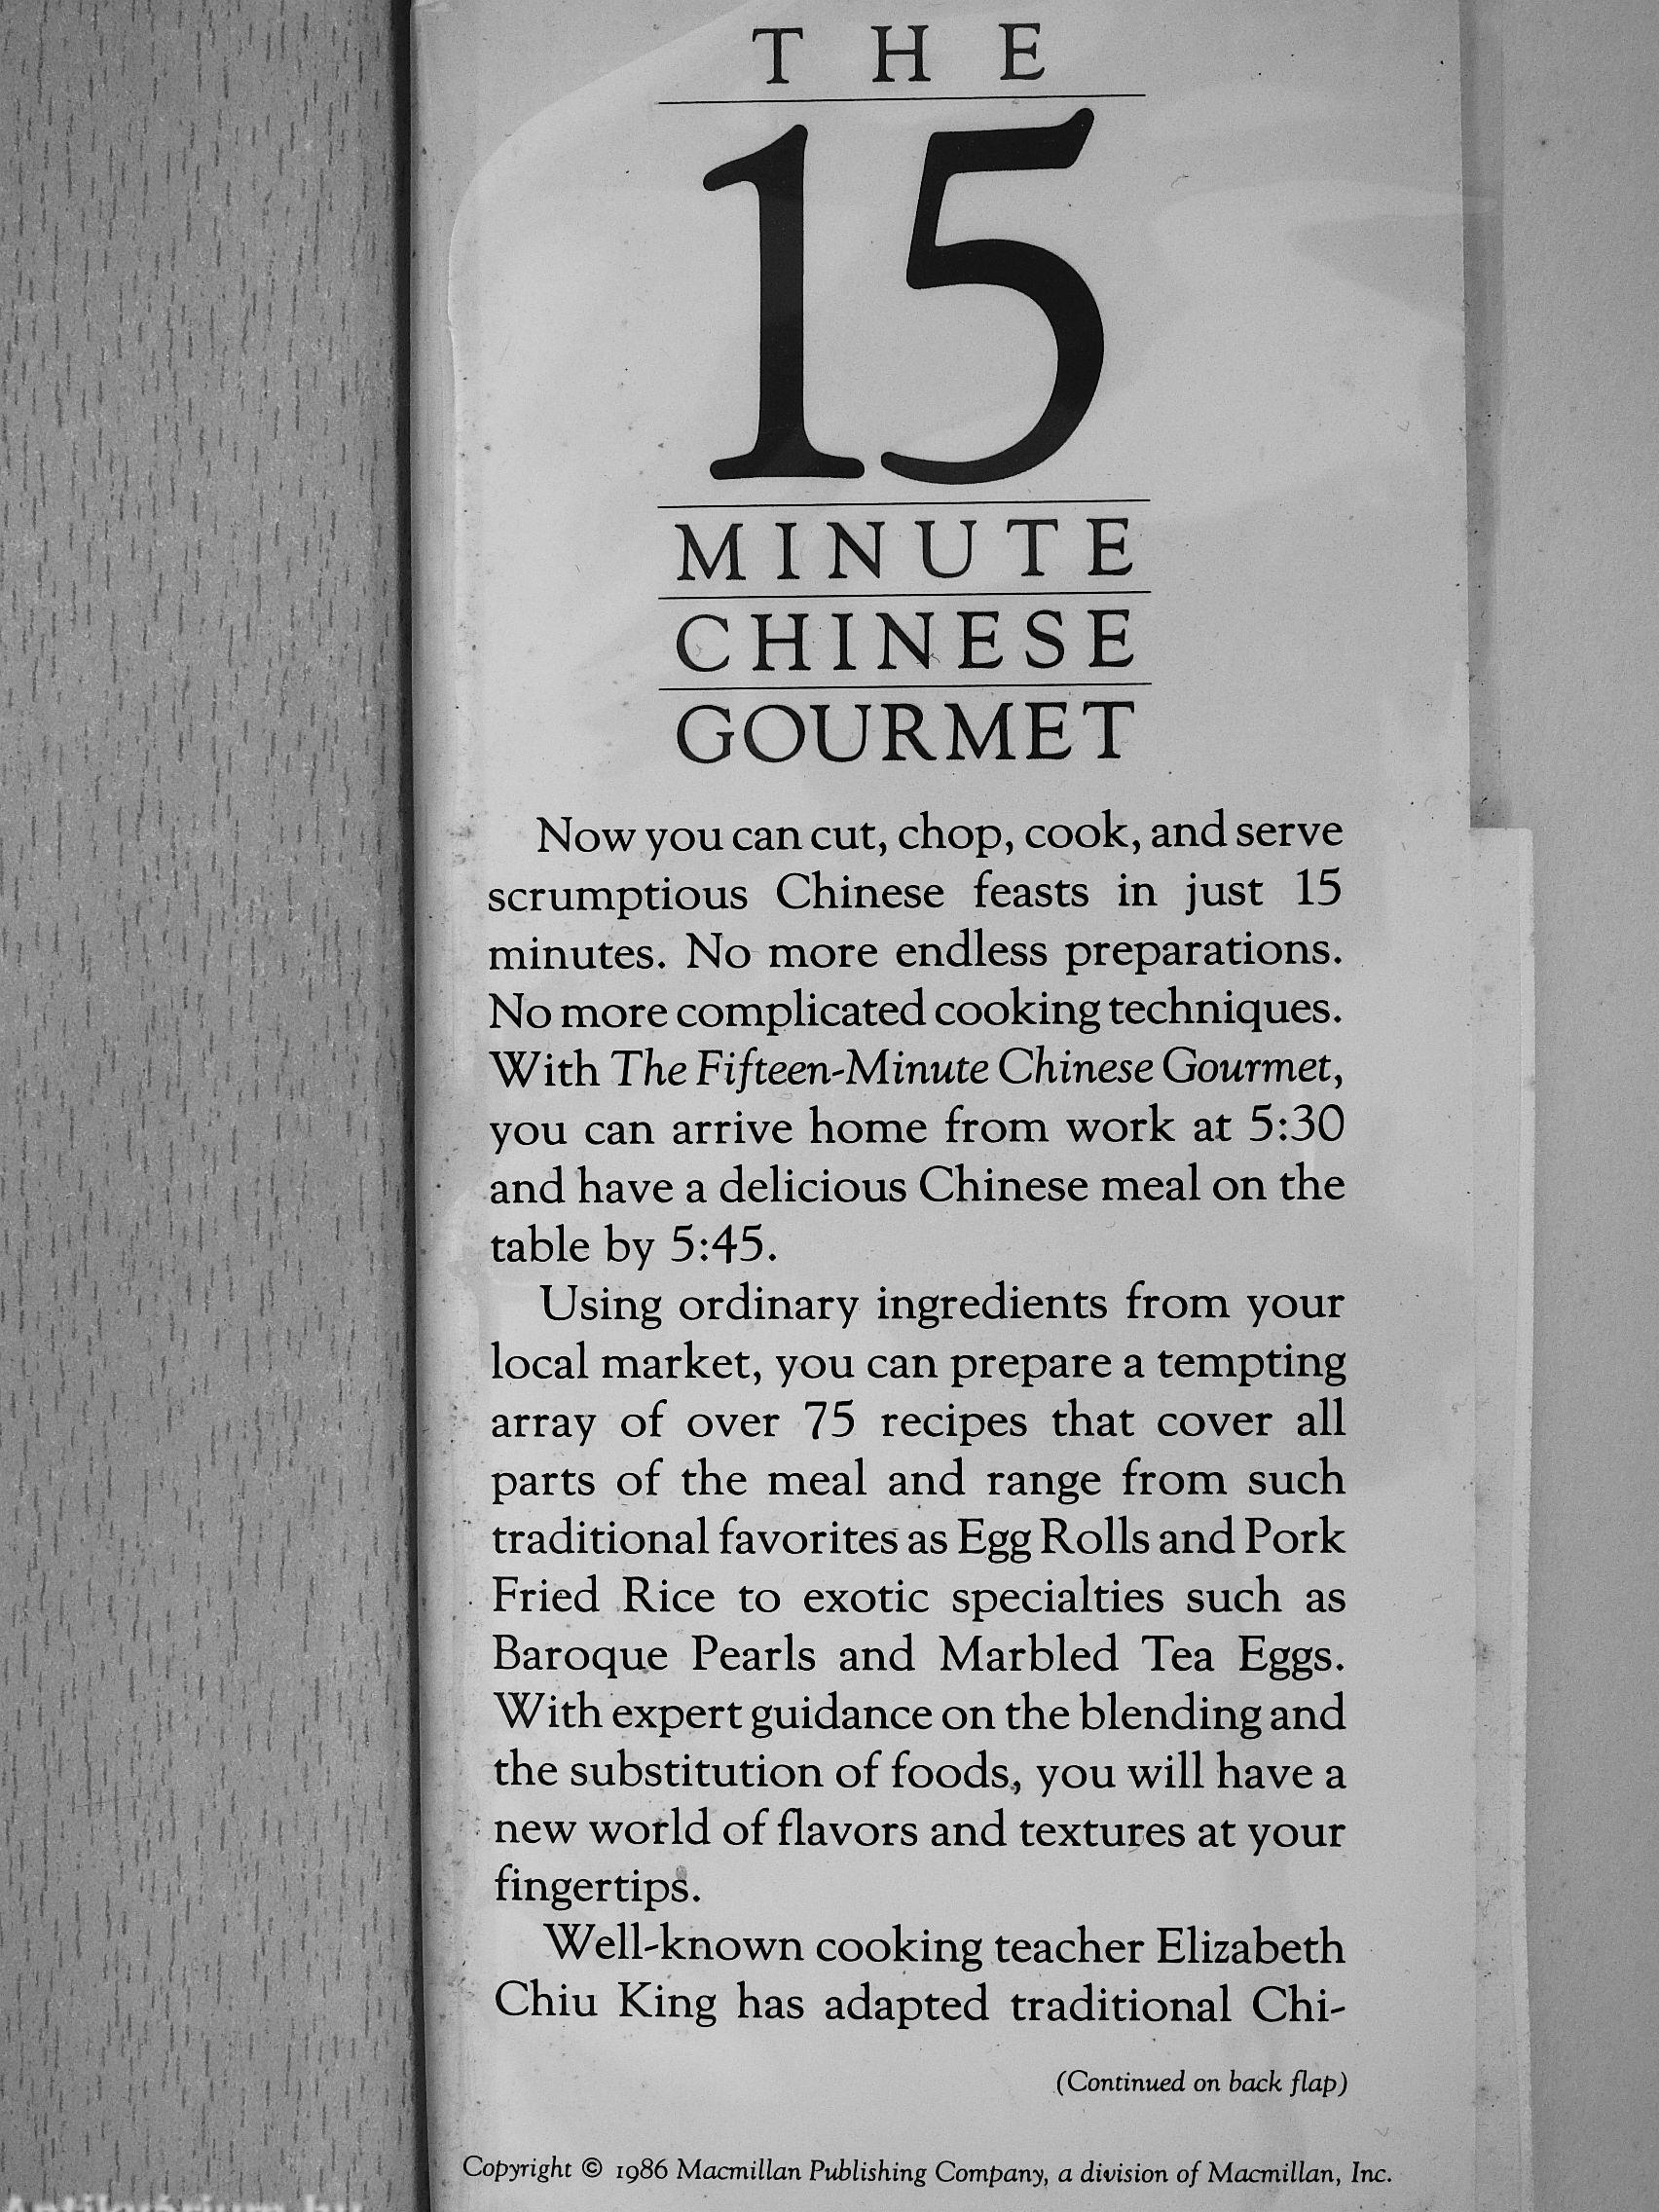 THE
15
MINUTE
CHINESE
GOURMET
Now you can cut, chop, cook, and serve
scrumptious Chinese feasts in just 15
minutes. No more endless preparations.
No more complicated cooking techniques.
With The Fifteen-Minute Chinese Gourmet,
you can arrive home from work at 5:30
and have a delicious Chinese meal on the
table by 5:45.
Using ordinary ingredients from your
local market, you can prepare a tempting
array of over 75 recipes that cover all
parts of the meal and range from such
traditional favorites as Egg Rolls and Pork
Fried Rice to exotic specialties such as
Baroque Pearls and Marbled Tea Eggs.
With expert guidance on the blending and
the substitution of foods, you will have a
new world of flavors and textures at your
fingertips.
Well-known cooking teacher Elizabeth
Chiu King has adapted traditional Chi-
(Continued on back flap)
Copyright © 1986 Macmillan Publishing Company, a division of Macmillan, Inc.